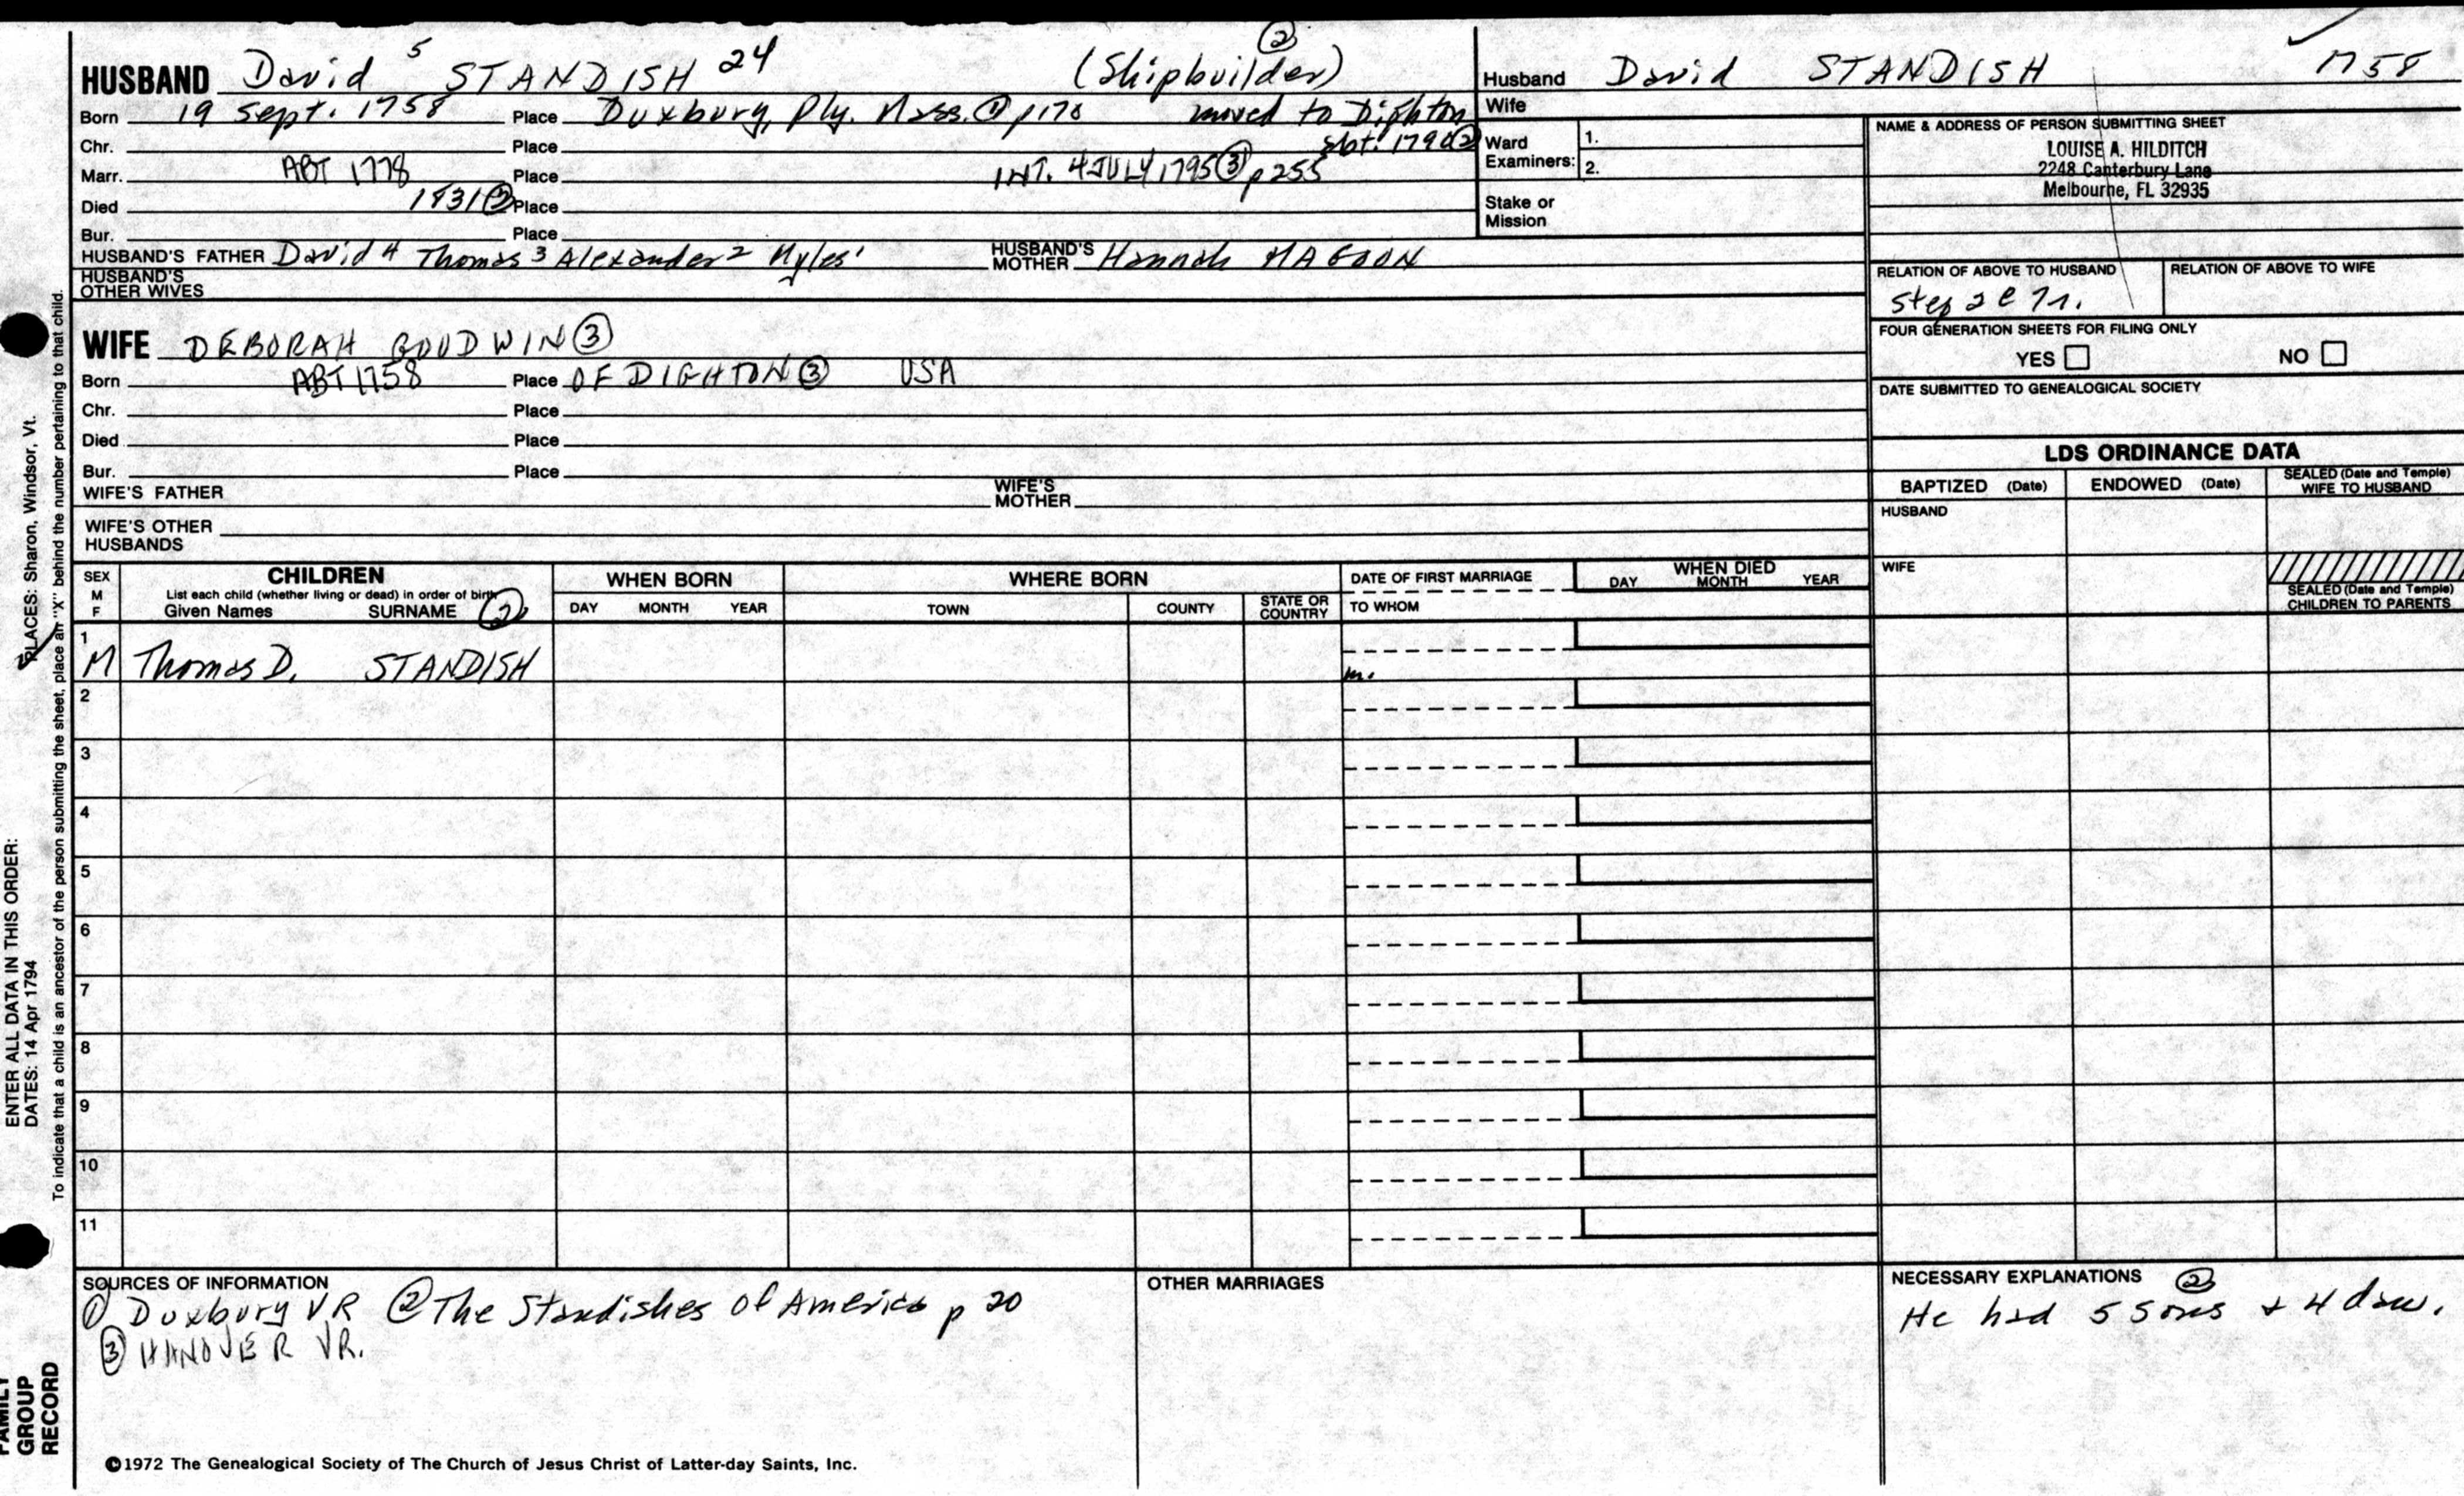 HUSBAND David 5 STANDISH 24 (Shipbuilder) ②
Born 19 Sept. 1758 Place Duxbury, Ply. Mass. ① p170 moved to Dighton
abt. 1790 ②
Chr. Place
Marr. ABT 1778 Place INT. 4 JULY 1795 ③ p255
Died 1831 ② Place
Bur. Place
HUSBAND'S FATHER David 4 Thomas 3 Alexander 2 Myles 1 HUSBAND'S MOTHER Hannah MAGOON
HUSBAND'S
OTHER WIVES
WIFE DEBORAH GOODWIN ③
Born ABT 1758 Place OF DIGHTON ③ USA
Chr. Place
Died Place
Bur. Place
WIFE'S FATHER WIFE'S MOTHER
WIFE'S OTHER
HUSBANDS
Husband David STANDISH 1758
Wife
Ward
Examiners: 1.
2.
Stake or
Mission
NAME & ADDRESS OF PERSON SUBMITTING SHEET
LOUISE A. HILDITCH
2248 Canterbury Lane
Melbourne, FL 32935
RELATION OF ABOVE TO HUSBAND RELATION OF ABOVE TO WIFE
FOUR GENERATION SHEETS FOR FILING ONLY
YES NO
DATE SUBMITTED TO GENEALOGICAL SOCIETY
LDS ORDINANCE DATA
BAPTIZED (Date) ENDOWED (Date) SEALED (Date and Temple)
WIFE TO HUSBAND
HUSBAND
WIFE
SEALED (Date and Temple)
CHILDREN TO PARENTS
SEX
M
F
CHILDREN
List each child (whether living or dead) in order of birth
Given Names SURNAME ②
WHEN BORN
DAY MONTH YEAR
WHERE BORN
TOWN COUNTY STATE OR COUNTRY
DATE OF FIRST MARRIAGE
TO WHOM
WHEN DIED
DAY MONTH YEAR
1
M Thomas D. STANDISH m.
2
3
4
5
6
7
8
9
10
11
SOURCES OF INFORMATION
① Duxbury VR ② The Standishes of America p 20
③ HANOVER VR.
OTHER MARRIAGES
NECESSARY EXPLANATIONS ②
He had 5 sons + 4 dau.
©1972 The Genealogical Society of The Church of Jesus Christ of Latter-day Saints, Inc.
ENTER ALL DATA IN THIS ORDER:
DATES: 14 Apr 1794
PLACES: Sharon, Windsor, Vt.
To indicate that a child is an ancestor of the person submitting the sheet, place an "X" behind the number pertaining to that child.
FAMILY
GROUP
RECORD